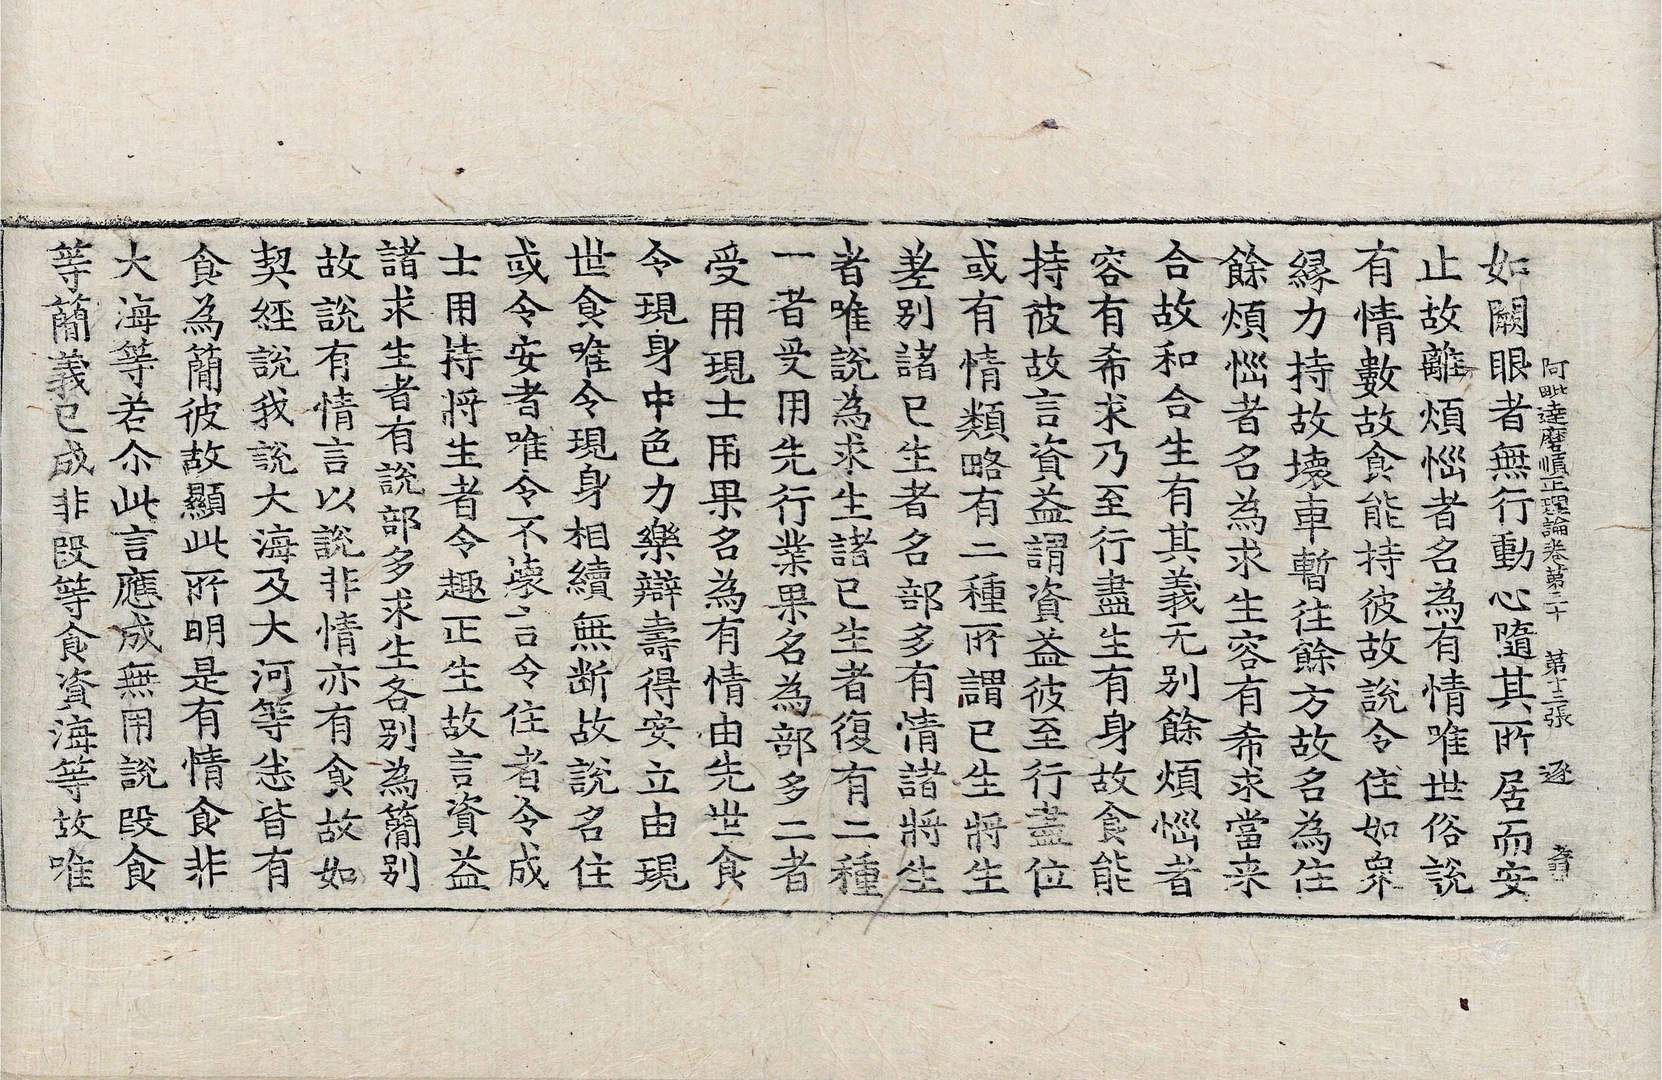 阿毗達磨順正理論卷第三十 第十三張 逐
如闕眼者無行動心隨其所居而安
止故離煩惱者名為有情唯世俗說
有情數故食能持彼故說令住如衆
縁力持故壞車暫往餘方故名為住
餘煩惱者名為求生容有希求當来
合故和合生有其義无别餘煩惱者
容有希求乃至行盡生有身故食能
持彼故言資益謂資益彼至行盡位
或有情類略有二種所謂已生將生
差别諸已生者名部多有情諸將生
者唯說為求生諸已生者復有二種
一者受用先行業果名為部多二者
受用現士用果名為有情由先世食
令現身中色力樂辯壽得安立由現
世食唯令現身相續無断故說名住
或令安者唯令不壞言令住者令成
士用持將生者令趣正生故言資益
諸求生者有說部多求生各别為簡别
故說有情言以說非情亦有食故如
契經說我說大海及大河等悉皆有
食為簡彼故顯此所明是有情食非
大海等若尒此言應成無用說段食
等簡義已成非段等食資海等故唯